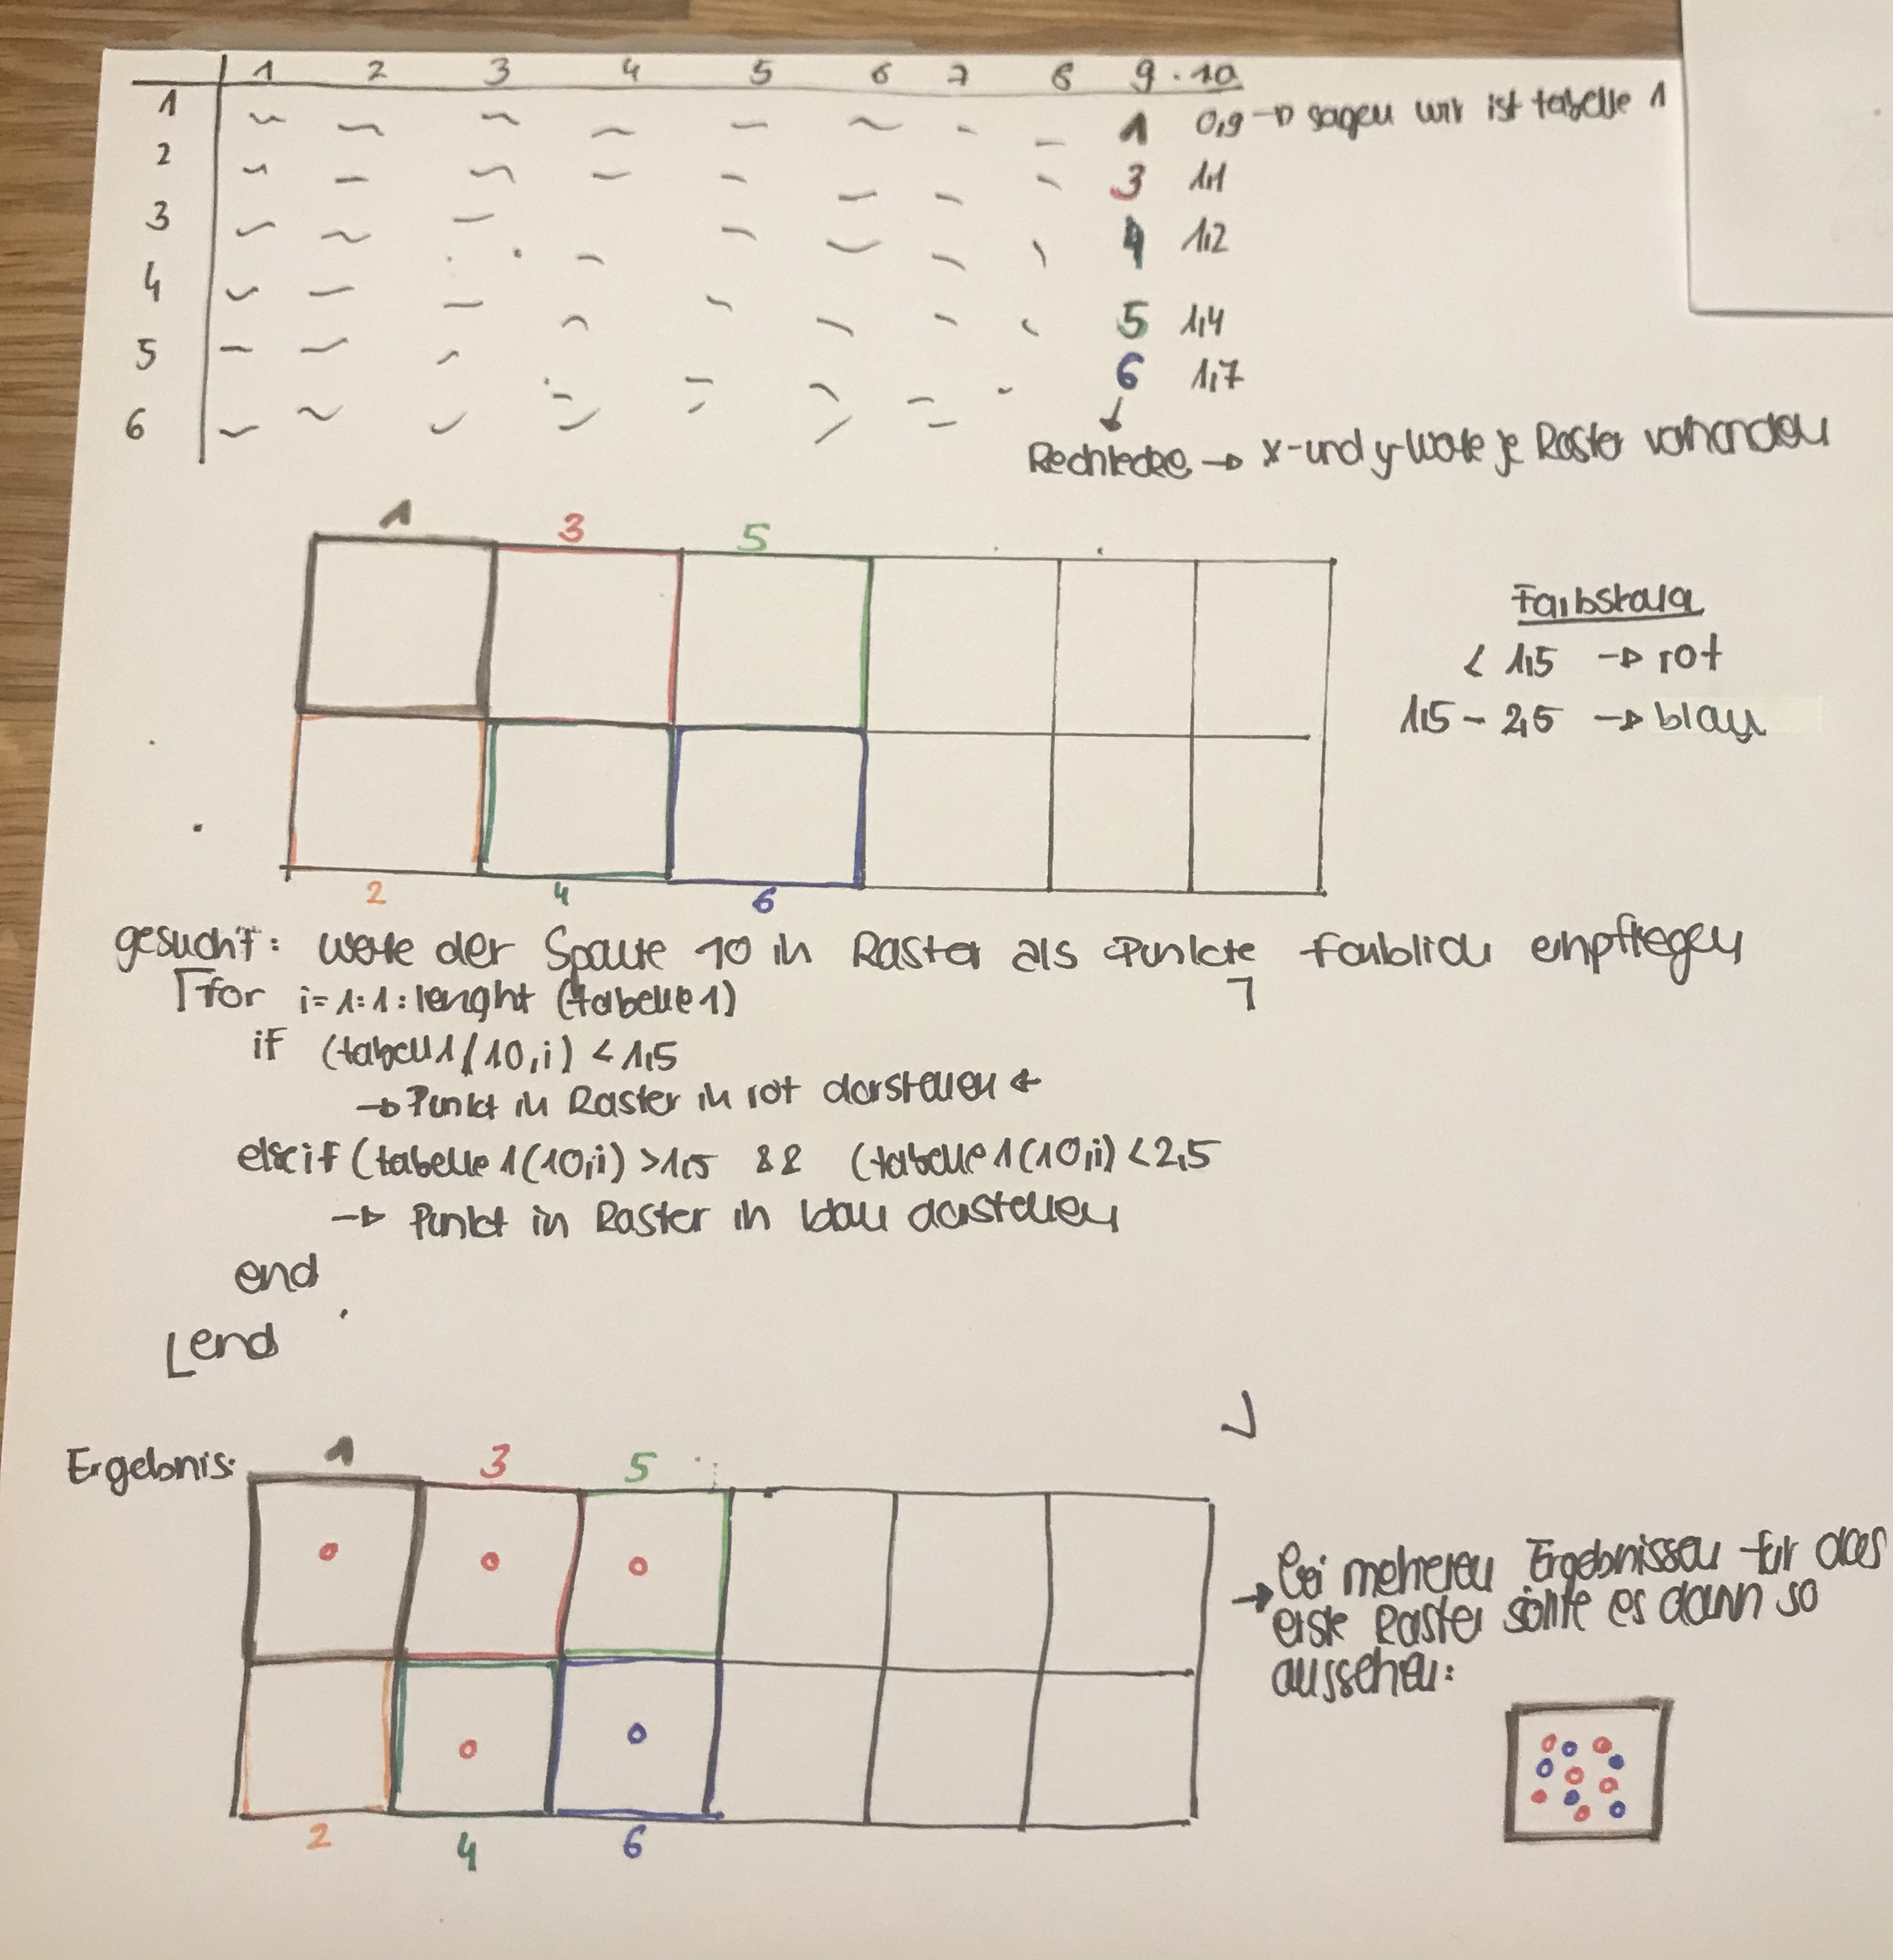 1 2 3 4 5 6 7 8 9 10
1 1 0,9 → sagen wir ist tabelle 1
2 3 1,1
3 4 1,2
4 5 1,4
5 6 1,7
6
Rechtecke → x-und y-Werte je Raster vorhanden
1 3 5
Farbskala
< 1,5 → rot
1,5 - 2,5 → blau
2 4 6
gesucht: Werte der Spalte 10 in Raster als Punkte farblich einpflegen
for i=1:1:lenght (tabelle1)
if (tabell1(10,i) < 1,5
→ Punkt in Raster in rot darstellen ←
elseif (tabelle1(10,i) >1,5 && (tabelle1(10,i) <2,5
→ Punkt in Raster in blau darstellen
end
end
Ergebnis:
1 3 5
→ bei meheren Ergebnissen für das
erste Raster sollte es dann so
aussehen:
2 4 6